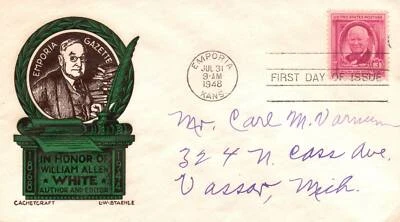 EMPORIA GAZETTE
1868 1944
IN HONOR OF
WILLIAM ALLEN
WHITE
AUTHOR AND EDITOR
CACHETCRAFT L-W-STAEHLE
EMPORIA
JUL 31
9-AM
1948
KANS.
FIRST DAY OF ISSUE
UNITED STATES POSTAGE
3¢
Mr. Carl M. Varnum
324 N. Cass Ave.
Vassar, Mich.